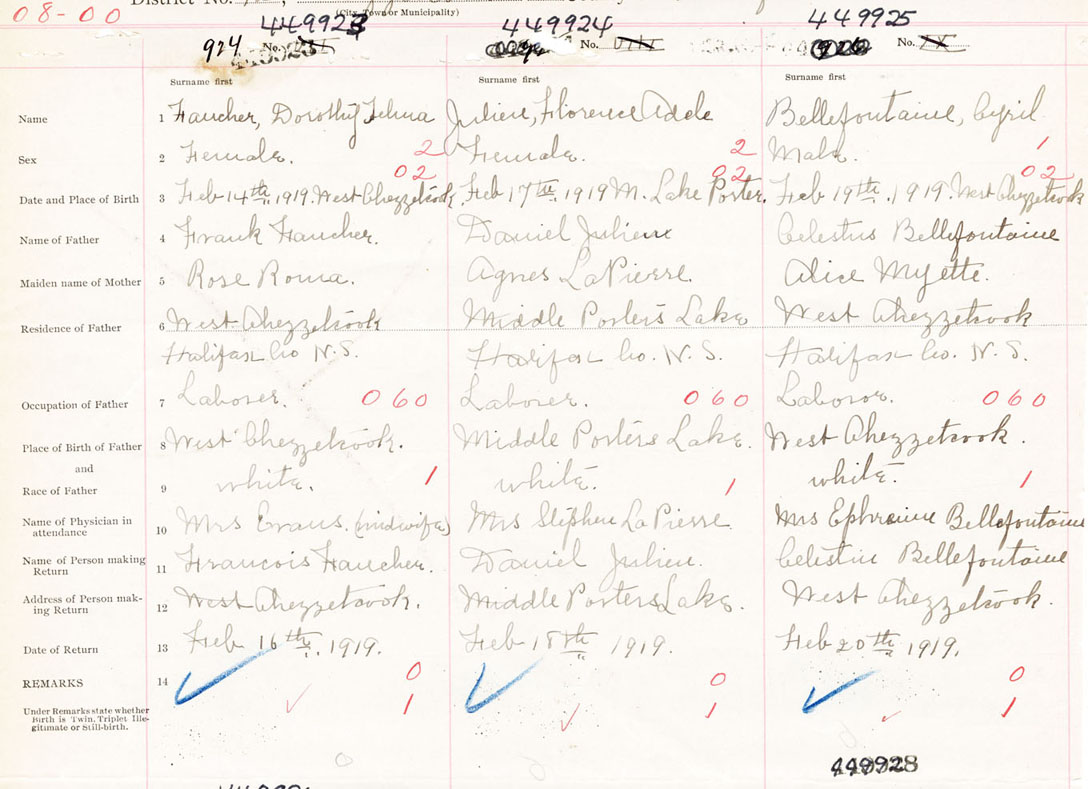 08-00 District No.
(City, Town or Municipality)
449923 449924 449925
924 No. No. No.
Surname first Surname first Surname first
Name 1 Faucher, Dorothy Telma Julien, Florence Adele Bellefontaine, Cyril
Sex 2 Female. 2 Female. 2 Male. 1
02 02 02
Date and Place of Birth 3 Feb 14th, 1919. West Chezzetcook Feb 17th, 1919 M. Lake Porter. Feb 19th, 1919. West Chezzetcook
Name of Father 4 Frank Faucher. Daniel Julien Celestus Bellefontaine
Maiden name of Mother 5 Rose Roma. Agnes LaPierre. Alice Myette.
Residence of Father 6 West Chezzetcook Middle Porters Lake West Chezzetcook
Halifax Co N.S. Halifax Co. N.S. Halifax Co. N.S.
Occupation of Father 7 Laborer. 060 Laborer. 060 Laboror. 060
Place of Birth of Father 8 West Chezzetcook. Middle Porters Lake. West Chezzetcook.
and
Race of Father 9 white. 1 white. 1 white. 1
Name of Physician in
attendance 10 Mrs Evans. (midwife) Mrs Stephen LaPierre Mrs Ephraim Bellefontaine
Name of Person making
Return 11 Francois Faucher. Daniel Julien. Celestin Bellefontaine
Address of Person mak-
ing Return 12 West Chezzetcook. Middle Porters Lake. West Chezzetcook.
Date of Return 13 Feb 16th, 1919. Feb 18th 1919. Feb 20th 1919.
REMARKS 14 0 0 0
Under Remarks state whether
Birth is Twin, Triplet Ille-
gitimate or Still-birth. 1 1 1
449928